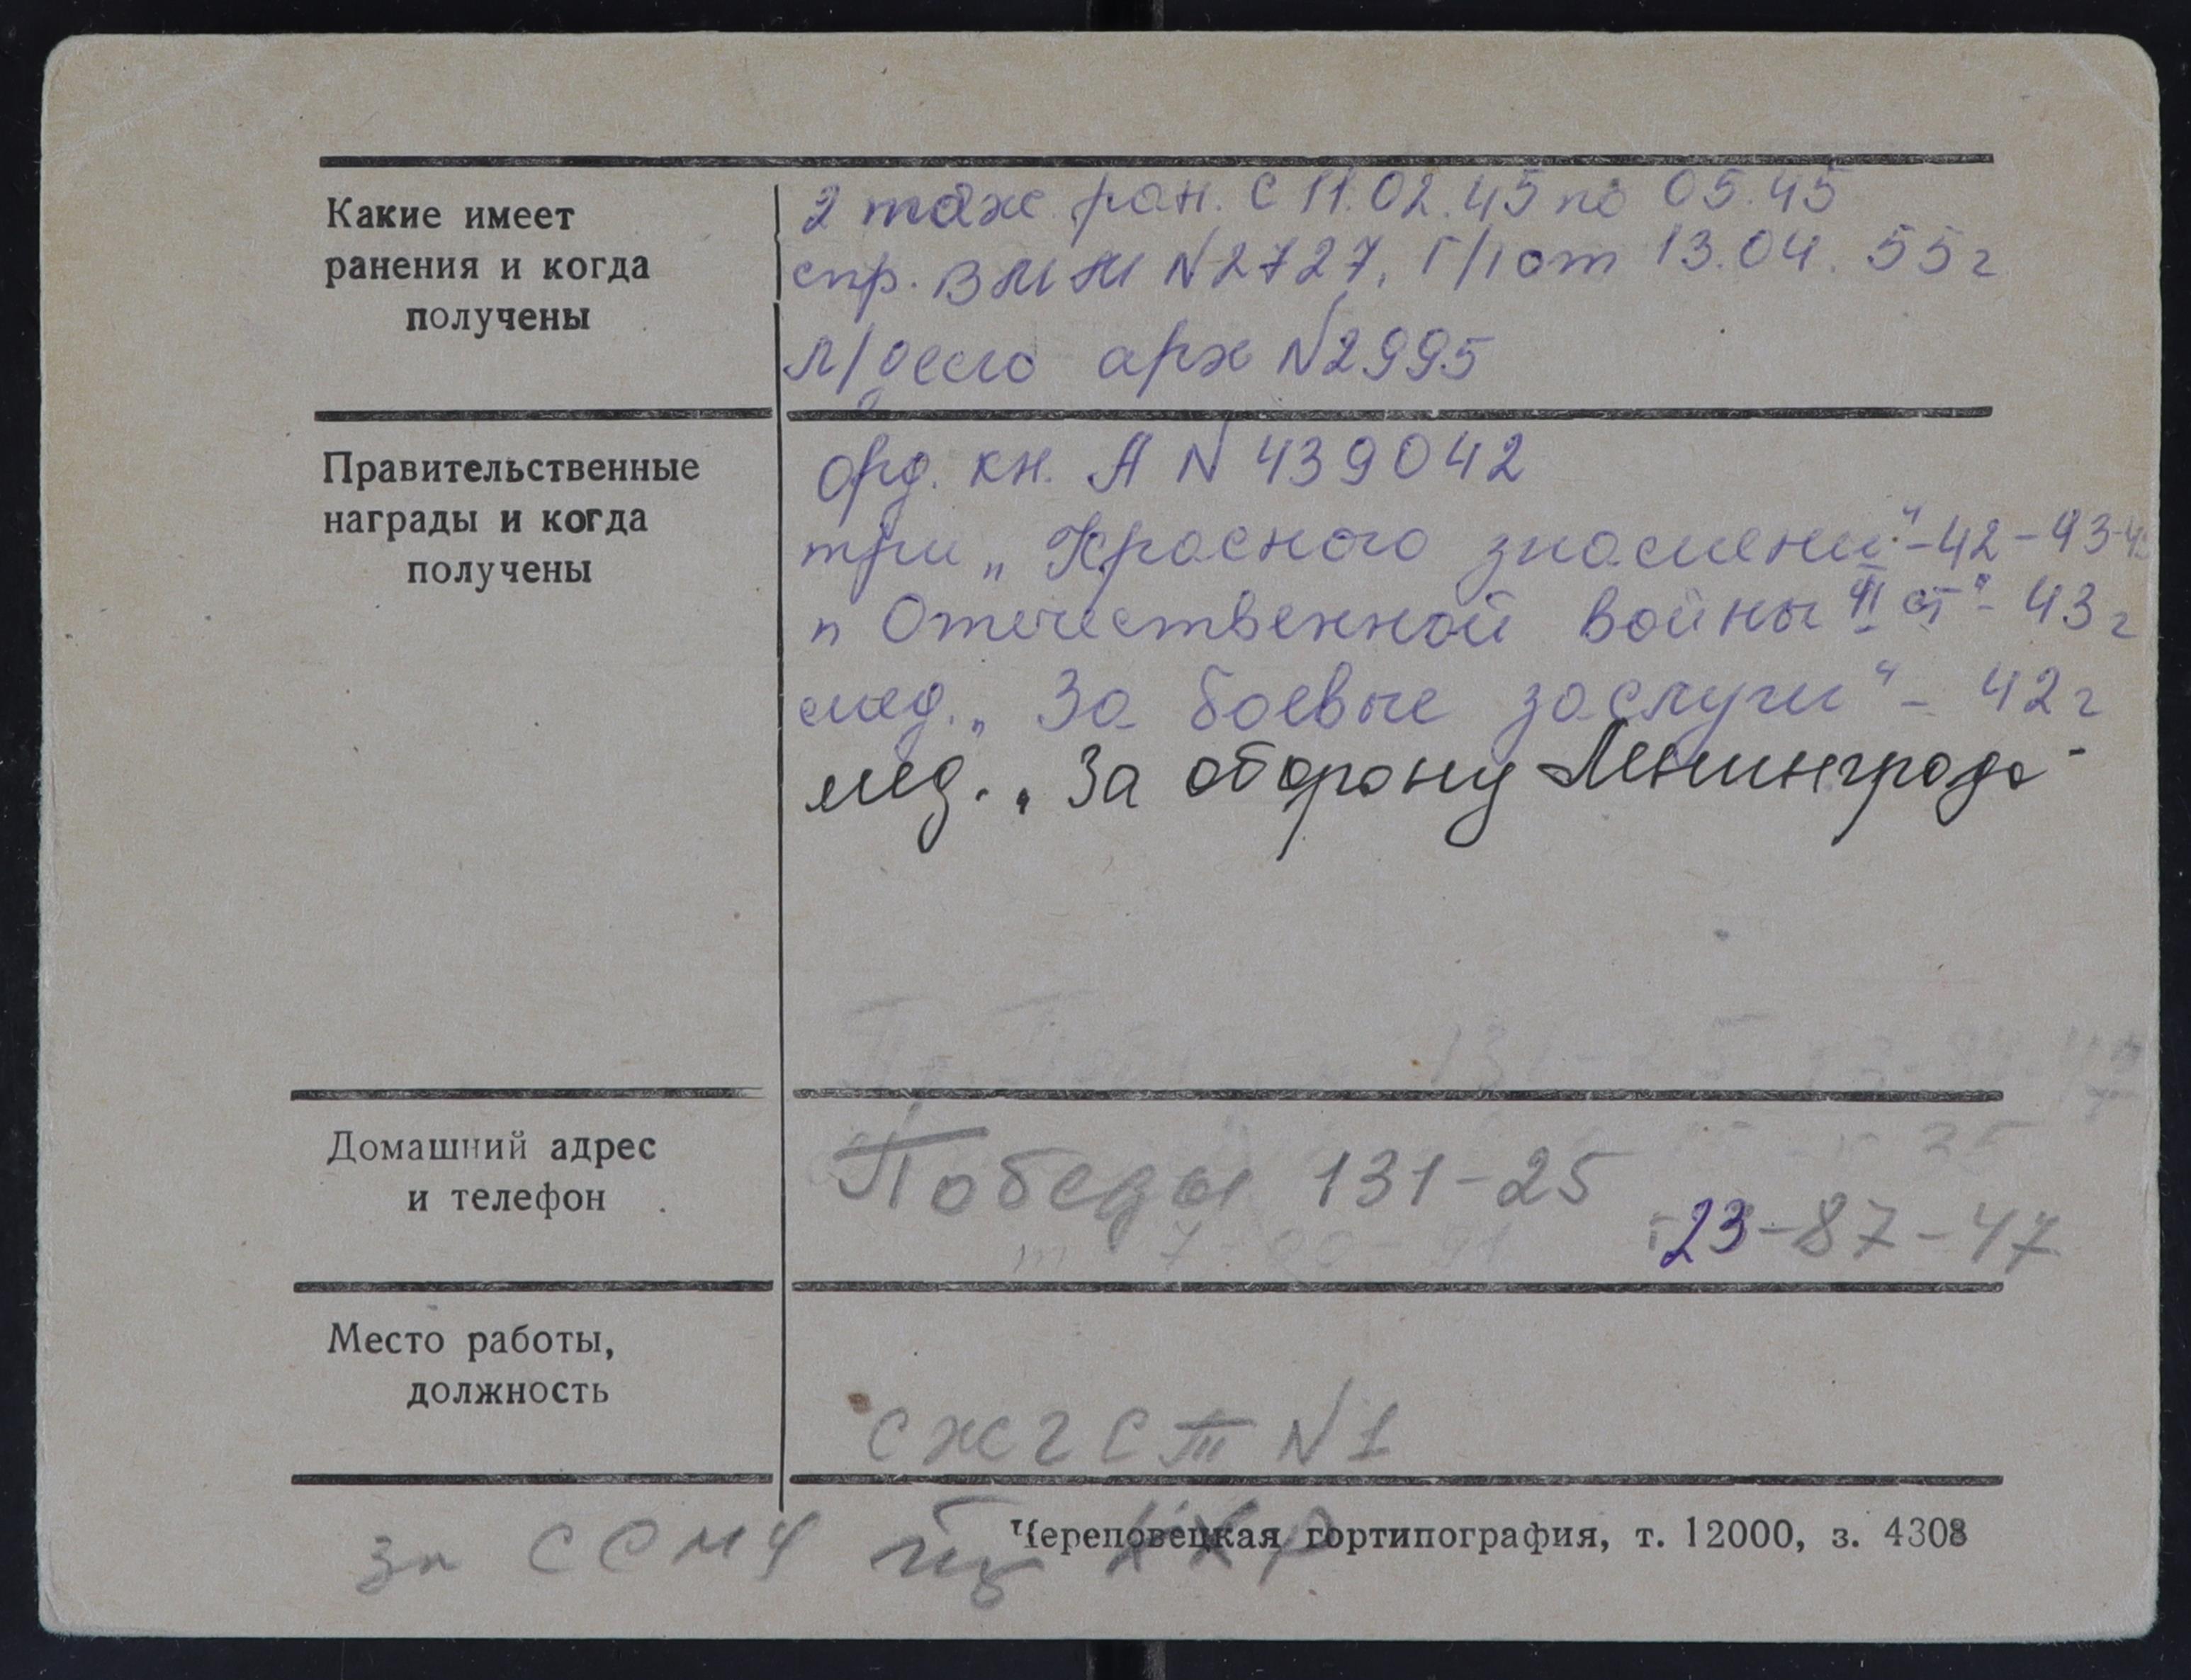 Какие имеет
ранения и когда
получены
2 тяж. ран. с 11.02.45 по 05.45
спр. ВММ N 2727, Г/1 от 13.04.55г
л/дело арх N 2995
Правительственные
награды и когда
получены
Орд. кн. А N 439042
три „Красного знамени" - 42 - 43 -
„ Отечественной войны II ст" - 43г
мед. „За боевые заслуги" - 42г
мед. „За оборону Ленинграда"
Домашний адрес
и телефон
Победы 131-25
т 23-87-47
Место работы,
должность
СЖ2СТ N 1
Череповецкая гортипография, т. 12000, з. 4308